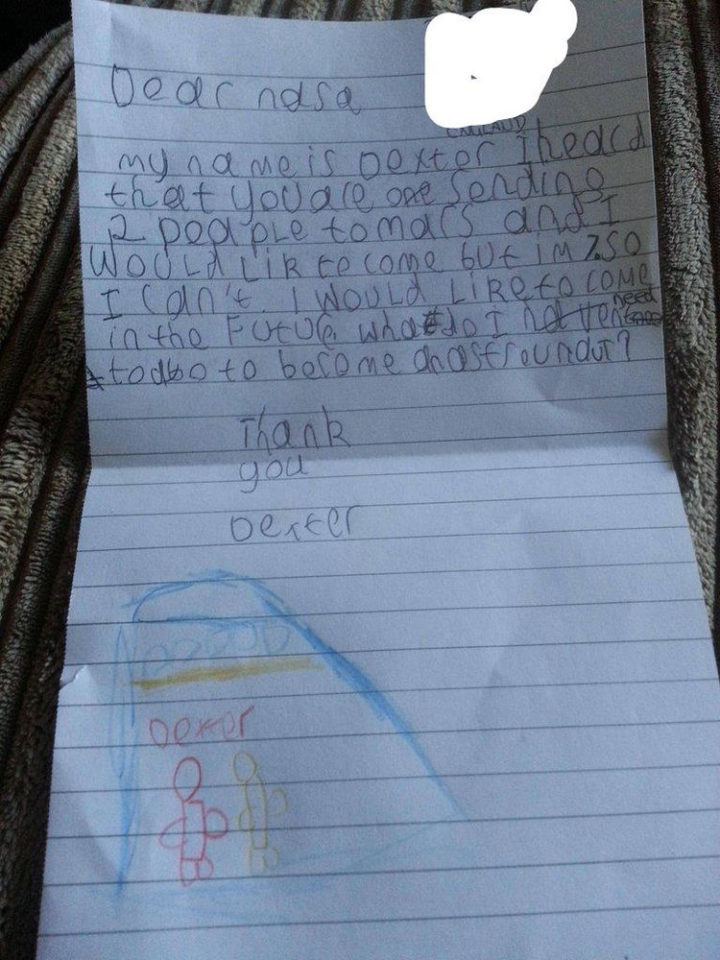 Dear nasa
ENGLAND
my name is Dexter I heard
that you are one sending
2 peaple to mars and I
WOULd LiKe to come but im 7. SO
I can't. I WOULd LiKe to come
in the FUtUre. what do I need
to do to become an astrounaut?
Thank
you
Dexter
Dexter